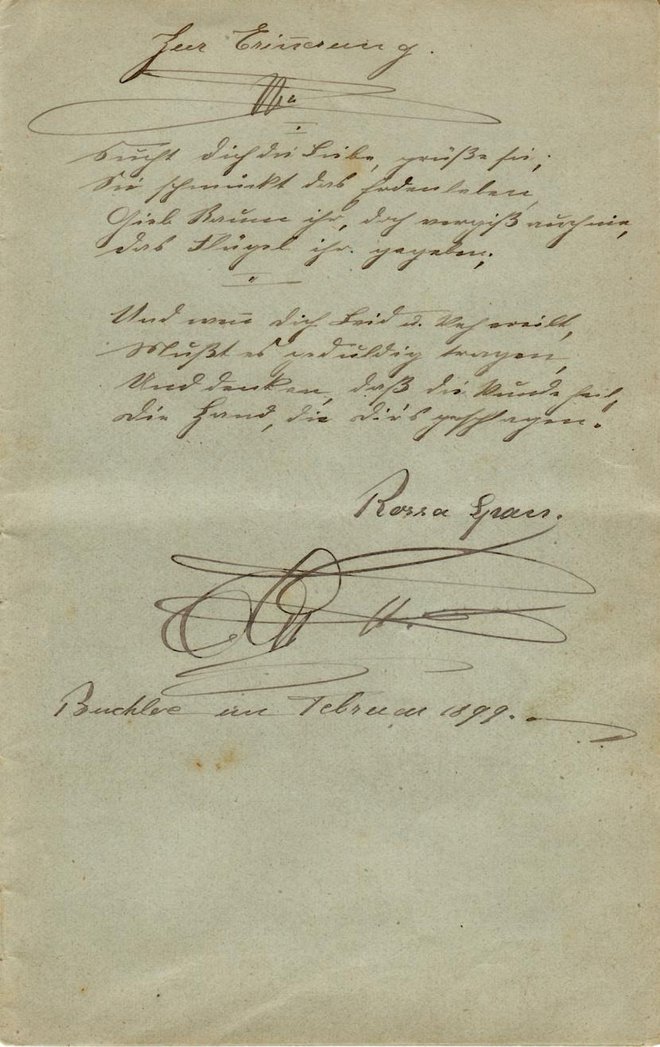 Zur Erin̄erung.
Sucht dich die Liebe, grüße sie;
Sie schmückt das Erdenleben,
Gieb Raum ihr, doch vergiß auch nie,
das Flügel ihr gegeben;
Und wen̄ dich Leid u. Weh ereilt,
Mußt es geduldig tragen,
Und denken, daß die Wunde heilt,
die Hand, die dir's geschlagen.
Rossa
Buchloe im Februar 1899.